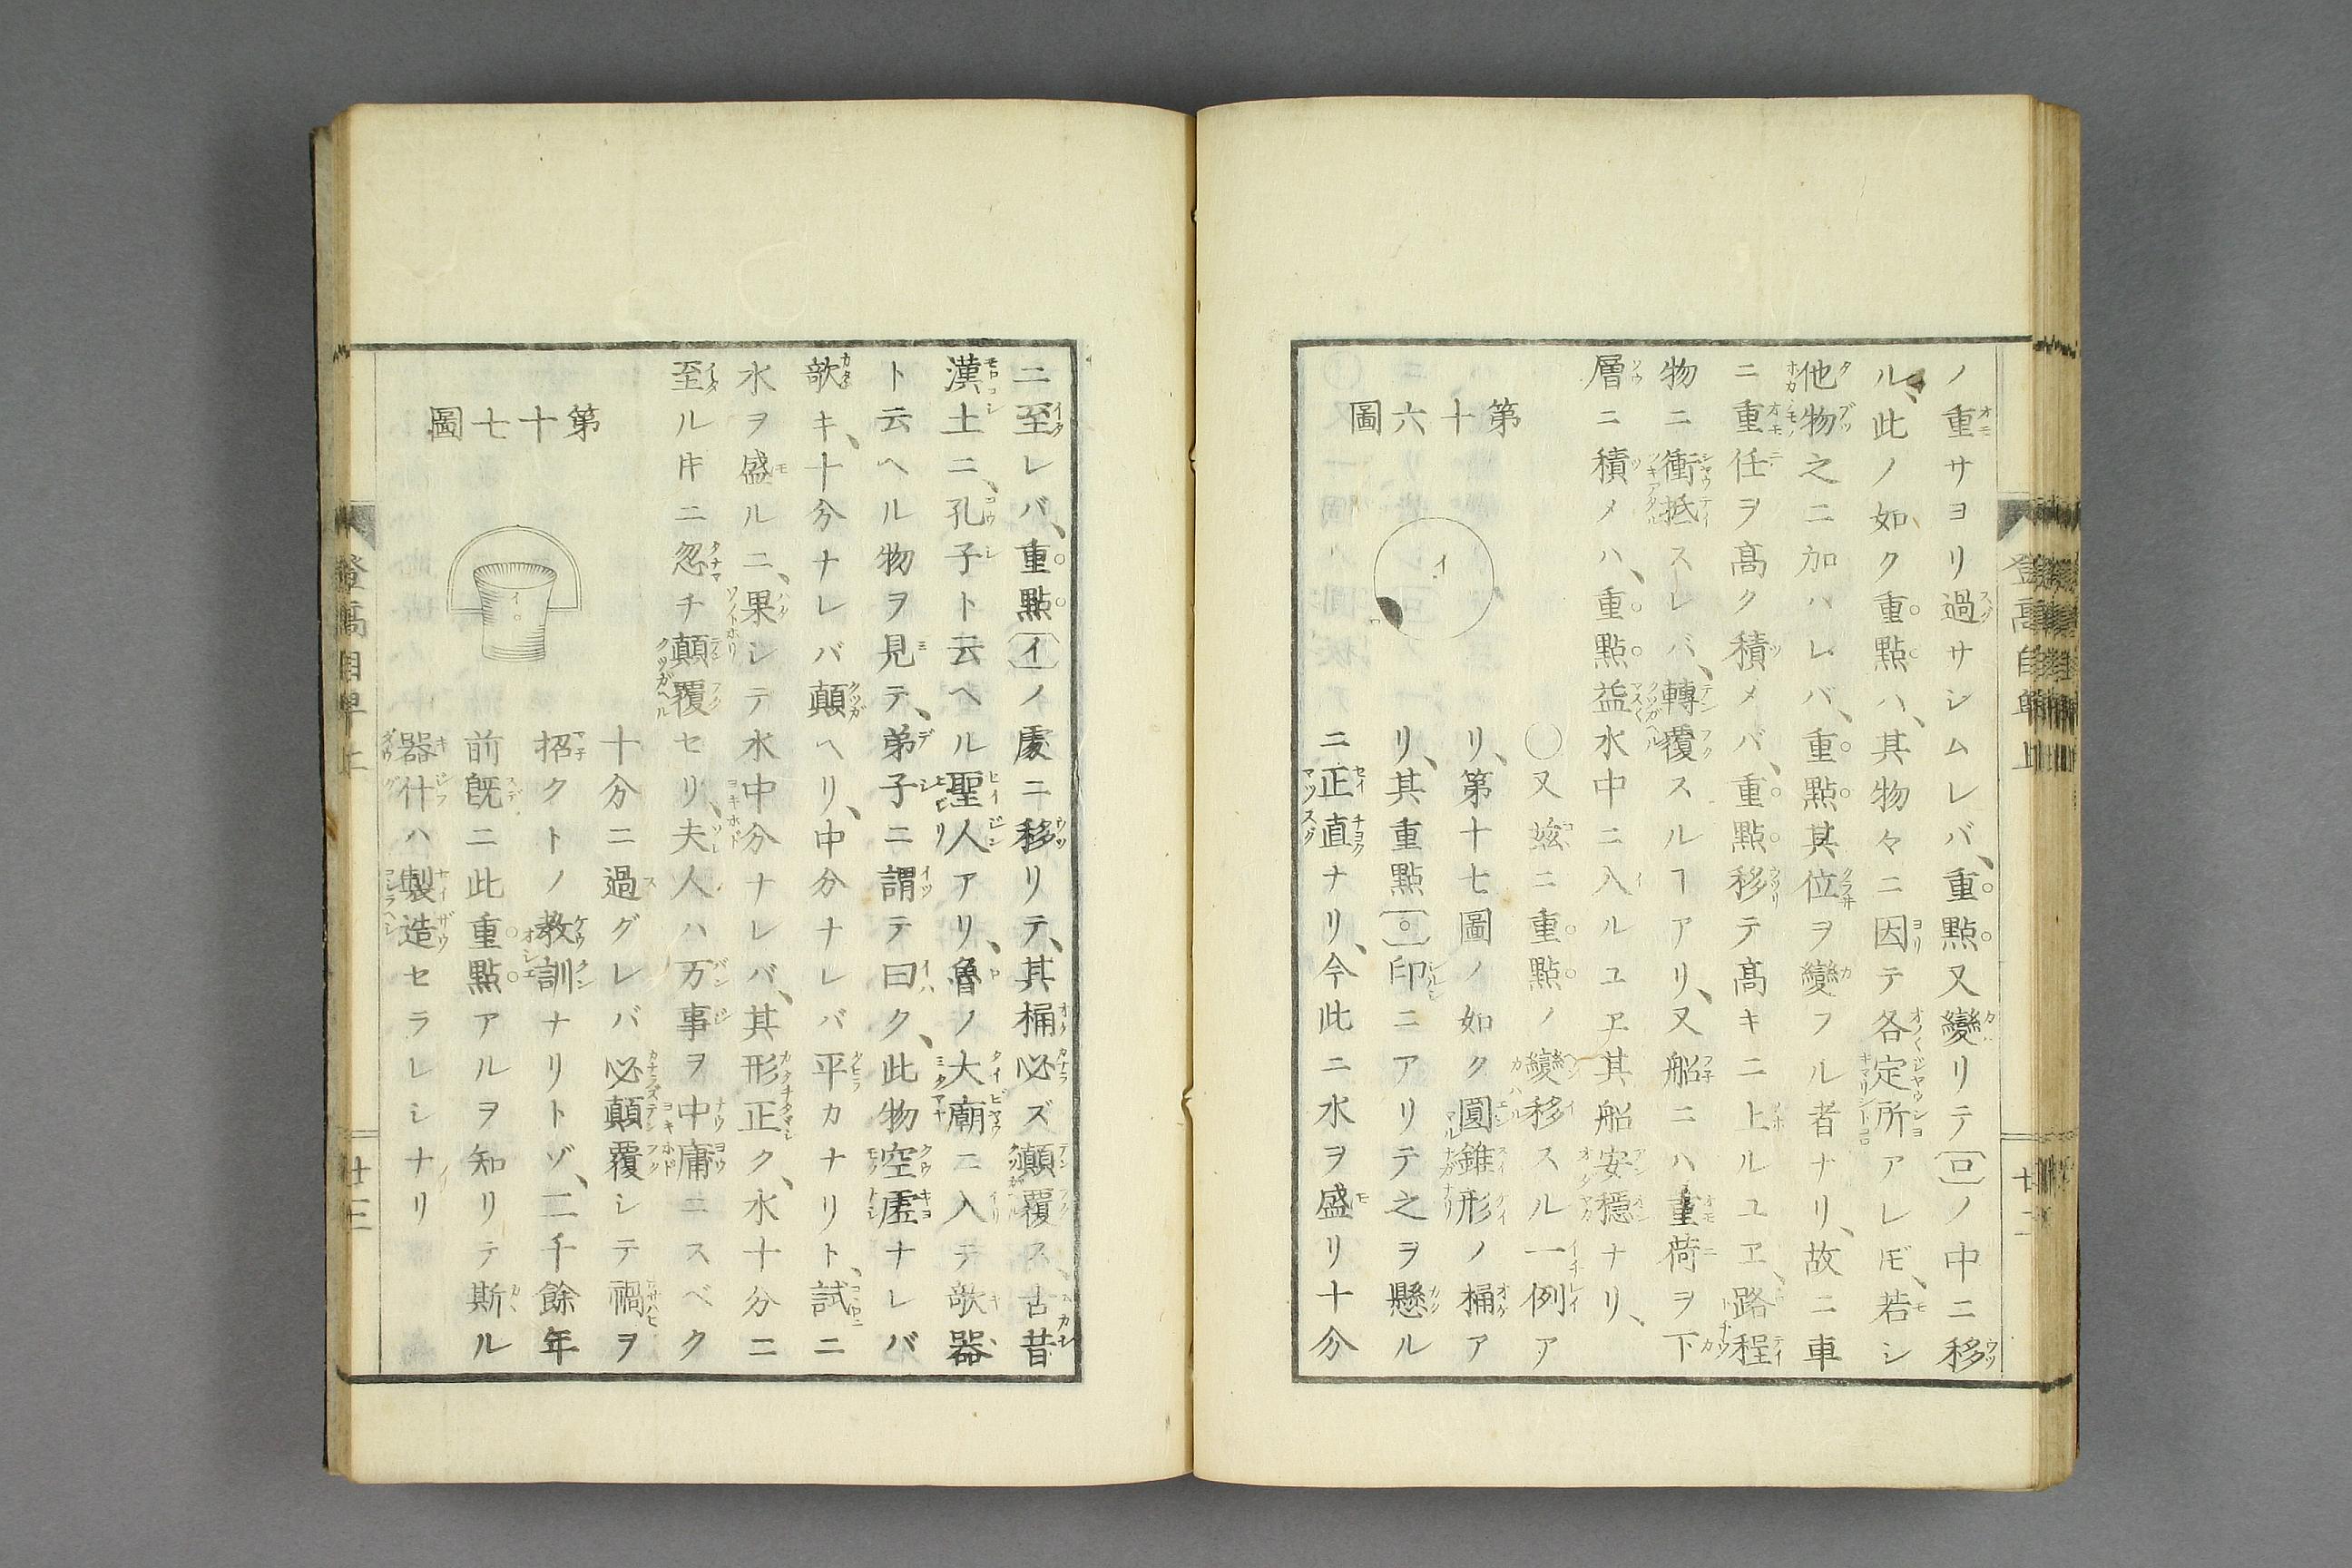 ノ重サヨリ過サシムレバ、重點又變リテ〔ロ〕ノ中ニ移
ル、此ノ如ク重點ハ、其物々ニ因テ各定所アレ𪜈、若シ
他物之ニ加ハレバ、重點其位ヲ變フル者ナリ、故ニ車
ニ重任ヲ髙ク積メバ、重點移テ髙キニ上ルユヱ、路程
物ニ衝抵スレバ、轉覆スルヿアリ、又船ニハ重荷ヲ下
層ニ積メハ、重點益水中ニ入ルユヱ其船安穩ナリ、
第十六圖
イ
ロ
〇又玆ニ重點ノ變移スル一例ア
リ、第十七圖ノ如ク圓錐形ノ桶ア
リ、其重點〔〇〕印ニアリテ之ヲ懸ル
ニ正直ナリ、今此ニ水ヲ盛リ十分
ニ至レバ、重點〔イ〕ノ處ニ移リテ、其桶必ズ顚覆ス、古昔
漢土ニ、孔子ト云ヘル聖人アリ、魯ノ大廟ニ入テ欹器
ト云ヘル物ヲ見テ、弟子ニ謂テ曰ク、此物空虛ナレバ
欹キ、十分ナレバ顚ヘリ、中分ナレバ平カナリト、試ニ
水ヲ盛ルニ、果シテ水中分ナレバ、其形正ク、水十分ニ
至ル𪜈ニ忽チ顚覆セリ、夫人ハ万事ヲ中庸ニスベク
第十七圖
イ
十分ニ過グレバ必顚覆シテ禍ヲ
招クトノ教訓ナリトゾ、二千餘年
前既ニ此重點アルヲ知リテ斯ル
器什ハ製造セラレシナリ
登髙自卑上
廿二
登髙自卑上
廿三